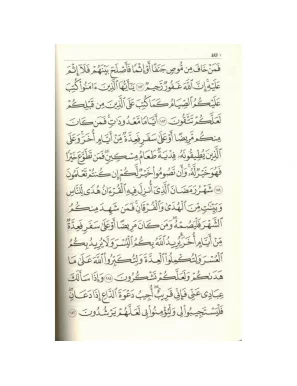 فَمَنْ خَافَ مِن مُّوصٍ جَنَفًا أَوْ إِثْمًا فَأَصْلَحَ بَيْنَهُمْ فَلَآ إِثْمَ
عَلَيْهِ إِنَّ ٱللَّهَ غَفُورٌ رَّحِيمٌ ١٨٢ يَـٰٓأَيُّهَا ٱلَّذِينَ ءَامَنُوا۟ كُتِبَ
عَلَيْكُمُ ٱلصِّيَامُ كَمَا كُتِبَ عَلَى ٱلَّذِينَ مِن قَبْلِكُمْ
لَعَلَّكُمْ تَتَّقُونَ ١٨٣ أَيَّامًا مَّعْدُودَٰتٍ فَمَن كَانَ
مِنكُم مَّرِيضًا أَوْ عَلَىٰ سَفَرٍ فَعِدَّةٌ مِّنْ أَيَّامٍ أُخَرَ وَعَلَى
ٱلَّذِينَ يُطِيقُونَهُۥ فِدْيَةٌ طَعَامُ مِسْكِينٍ فَمَن تَطَوَّعَ خَيْرًا
فَهُوَ خَيْرٌ لَّهُۥ وَأَن تَصُومُوا۟ خَيْرٌ لَّكُمْ إِن كُنتُمْ تَعْلَمُونَ
١٨٤ شَهْرُ رَمَضَانَ ٱلَّذِىٓ أُنزِلَ فِيهِ ٱلْقُرْءَانُ هُدًى لِّلنَّاسِ
وَبَيِّنَـٰتٍ مِّنَ ٱلْهُدَىٰ وَٱلْفُرْقَانِ فَمَن شَهِدَ مِنكُمُ
ٱلشَّهْرَ فَلْيَصُمْهُ وَمَن كَانَ مَرِيضًا أَوْ عَلَىٰ سَفَرٍ فَعِدَّةٌ
مِّنْ أَيَّامٍ أُخَرَ يُرِيدُ ٱللَّهُ بِكُمُ ٱلْيُسْرَ وَلَا يُرِيدُ بِكُمُ
ٱلْعُسْرَ وَلِتُكْمِلُوا۟ ٱلْعِدَّةَ وَلِتُكَبِّرُوا۟ ٱللَّهَ عَلَىٰ مَا
هَدَىٰكُمْ وَلَعَلَّكُمْ تَشْكُرُونَ ١٨٥ وَإِذَا سَأَلَكَ
عِبَادِى عَنِّى فَإِنِّى قَرِيبٌ أُجِيبُ دَعْوَةَ ٱلدَّاعِ إِذَا دَعَانِ
فَلْيَسْتَجِيبُوا۟ لِى وَلْيُؤْمِنُوا۟ بِى لَعَلَّهُمْ يَرْشُدُونَ ١٨٦